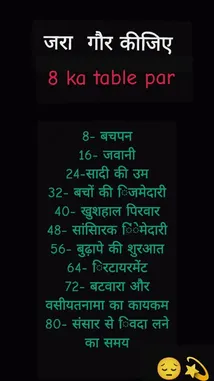 जरा गौर कीजिए
8 ka table par
8- बचपन
16- जवानी
24-सादी की उम
32- बचों की िजमेदारी
40- खुशहाल पिरवार
48- सांसािरक िजेमेदारी
56- बुढ़ापे की शुरआत
64- िरटायरमेंट
72- बटवारा और
वसीयतनामा का कायकम
80- संसार से िवदा लने
का समय